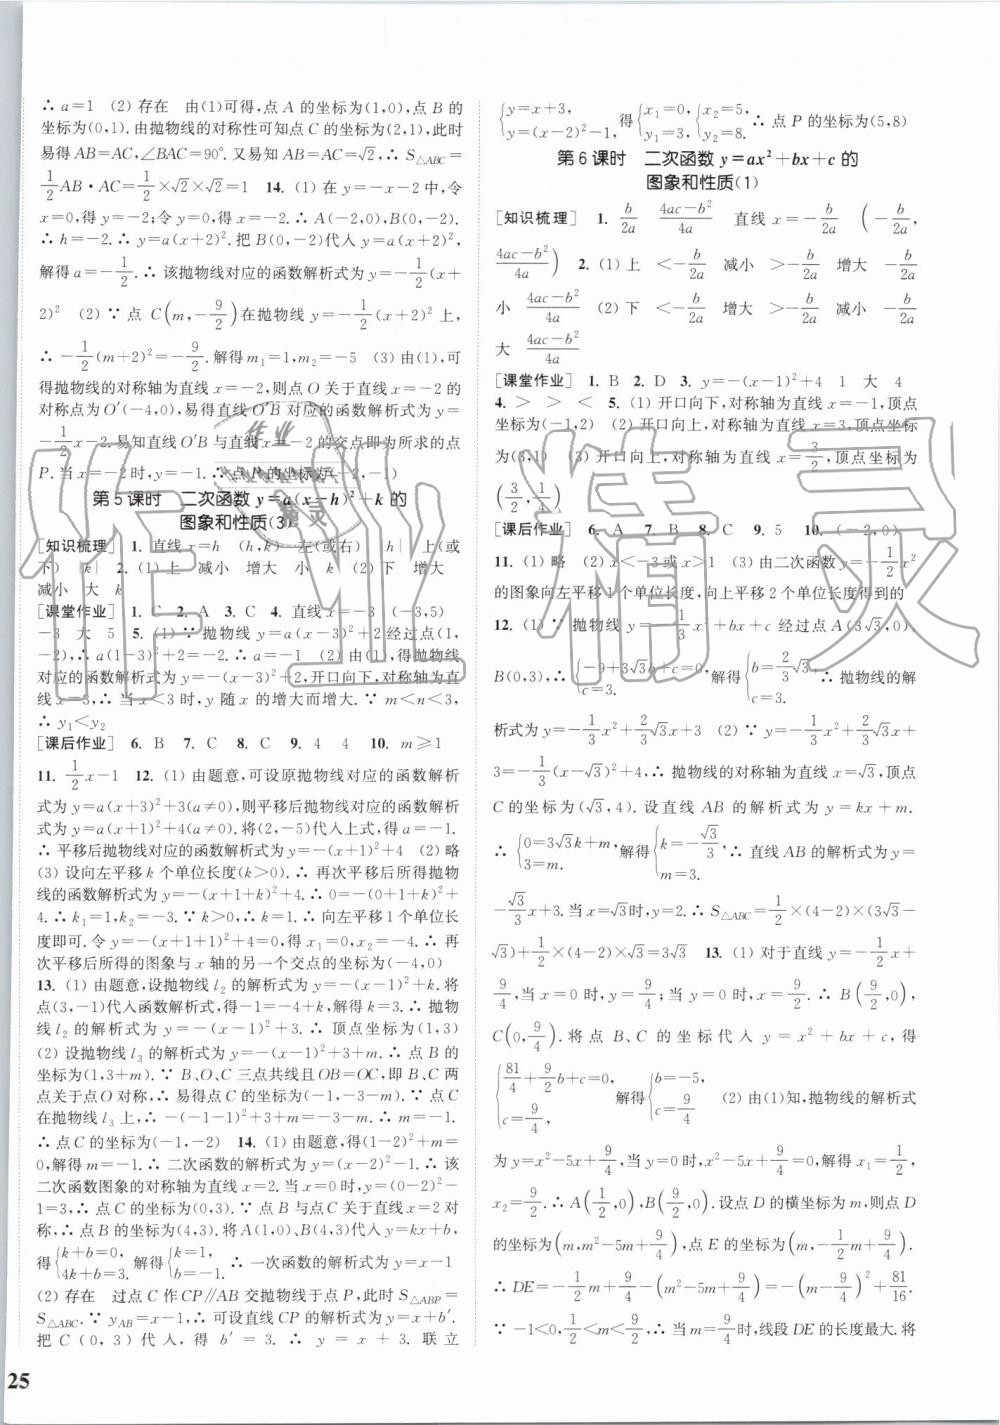 ∴ a=1 (2) 存在 由(1)可得,点 A 的坐标为(1,0),点 B 的
坐标为(0,1). 由抛物线的对称性可知点 C 的坐标为(2,1),此时
易得 AB=AC,∠BAC=90°. 又易知 AB=AC=√2,∴ S△ABC=
1/2 AB·AC=1/2×√2×√2=1 14. (1) 在 y=-x-2 中,令
x=0,得 y=-2;令 y=0,得 x=-2. ∴ A(-2,0),B(0,-2).
∴ h=-2. ∴ y=a(x+2)². 把 B(0,-2)代入 y=a(x+2)²,
解得 a=-1/2. ∴ 该抛物线对应的函数解析式为 y=-1/2(x+
2)² (2) ∵ 点 C(m,-9/2)在抛物线 y=-1/2(x+2)² 上,
∴ -1/2(m+2)²=-9/2. 解得 m₁=1,m₂=-5 (3) 由(1),可
得抛物线的对称轴为直线 x=-2,则点 O 关于直线 x=-2 的
对称点为 O′(-4,0),易得直线 O′B 对应的函数解析式为 y=
-1/2x-2. 易知直线 O′B 与直线 x=-2 的交点即为所求的点
P. 当 x=-2 时,y=-1. ∴ 点 P 的坐标为(-2,-1)
第 5 课时 二次函数 y=a(x-h)²+k 的
图象和性质(3)
[知识梳理] 1. 直线 x=h (h,k) 左(或右) |h| 上(或
下) |k| 2. (1) 上 减小 增大 小 k (2) 下 增大
减小 大 k
[课堂作业] 1. C 2. A 3. C 4. 直线 x=-3 (-3,5)
-3 大 5 5. (1) ∵ 抛物线 y=a(x-3)²+2 经过点(1,
-2),∴ a(1-3)²+2=-2. ∴ a=-1 (2) 由(1),得抛物线
对应的函数解析式为 y=-(x-3)²+2,开口向下,对称轴为直
线 x=3,∴ 当 x<3 时,y 随 x 的增大而增大. ∵ m<n<3,
∴ y₁<y₂
[课后作业] 6. B 7. C 8. C 9. 4 4 10. m≥1
11. 1/2x-1 12. (1) 由题意,可设原抛物线对应的函数解析
式为 y=a(x+3)²+3(a≠0),则平移后抛物线对应的函数解析
式为 y=a(x+1)²+4(a≠0). 将(2,-5)代入上式,得 a=-1.
∴ 平移后抛物线对应的函数解析式为 y=-(x+1)²+4 (2) 略
(3) 设向左平移 k 个单位长度(k>0). ∴ 再次平移后所得抛物
线的函数解析式为 y=-(x+1+k)²+4. ∴ 0=-(0+1+k)²+
4. ∴ k₁=1,k₂=-3. ∵ k>0,∴ k=1. ∴ 向左平移 1 个单位长
度即可. 令 -(x+1+1)²+4=0,得 x₁=0,x₂=-4. ∴ 再
次平移后所得的图象与 x 轴的另一个交点的坐标为(-4,0)
13. (1) 由题意,设抛物线 l₂ 的解析式为 y=-(x-1)²+k. 将
点(3,-1)代入函数解析式,得-1=-4+k,解得 k=3. ∴ 抛物
线 l₂ 的解析式为 y=-(x-1)²+3. ∴ 顶点坐标为(1,3)
(2) 设抛物线 l₃ 的解析式为 y=-(x-1)²+3+m. ∴ 点 B 的
坐标为(1,3+m). ∵ B、O、C 三点共线且OB=OC,即 B、C 两
点关于点 O 对称,∴ 易得点 C 的坐标为(-1,-3-m). ∵ 点 C
在抛物线 l₃ 上,∴ -(-1-1)²+3+m=-3-m. ∴ m=-1.
∴ 点 C 的坐标为(-1,-2) 14. (1) 由题意,得(1-2)²+m=
0,解得 m=-1. ∴ 二次函数的解析式为 y=(x-2)²-1. ∴ 该
二次函数图象的对称轴为直线 x=2. 当 x=0 时,y=(0-2)²-
1=3,∴ 点 C 的坐标为(0,3). ∵ 点 B 与点 C 关于直线 x=2 对
称,∴ 点 B 的坐标为(4,3). 将 A(1,0)、B(4,3)代入 y=kx+b,
得{k+b=0, 4k+b=3. 解得{k=1, b=-1. ∴ 一次函数的解析式为 y=x-1
(2) 存在 过点 C 作 CP∥AB 交抛物线于点 P,此时 S△ABP=
S△ABC. ∵ yAB=x-1,∴ 可设直线 CP 的解析式为 y=x+b′.
把 C(0,3)代入,得 b′=3. ∴ y=x+3. 联立
25
{y=x+3, y=(x-2)²-1, 得{x₁=0, y₁=3, {x₂=5, y₂=8. ∴ 点 P 的坐标为(5,8)
第 6 课时 二次函数 y=ax²+bx+c 的
图象和性质(1)
[知识梳理] 1. b/2a (4ac-b²)/4a 直线 x=-b/2a (-b/2a,
(4ac-b²)/4a) 2. (1) 上 <-b/2a 减小 >-b/2a 增大 -b/2a
小 (4ac-b²)/4a (2) 下 <-b/2a 增大 >-b/2a 减小 -b/2a
大 (4ac-b²)/4a
[课堂作业] 1. B 2. D 3. y=-(x-1)²+4 1 大 4
4. > > < 5. (1) 开口向下,对称轴为直线 x=-1,顶点
坐标为(-1,2) (2) 开口向下,对称轴为直线 x=3,顶点坐标
为(3,1) (3) 开口向上,对称轴为直线 x=3/2,顶点坐标为
(3/2,1/4)
[课后作业] 6. A 7. B 8. C 9. 5 10. (-2,0)
11. (1) 略 (2) x<-3 或 x>1 (3) 由二次函数 y=-1/2x²
的图象向左平移 1 个单位长度,向上平移 2 个单位长度得到的
12. (1) ∵ 抛物线 y=-1/3x²+bx+c 经过点 A(3√3,0)、
B(0,3),∴ {-9+3√3b+c=0, c=3. 解得{b=2/3√3, c=3. ∴ 抛物线的解
析式为 y=-1/3x²+2/3√3x+3 (2) ∵ y=-1/3x²+2/3√3x+
3=-1/3(x-√3)²+4,∴ 抛物线的对称轴为直线 x=√3,顶点
C 的坐标为(√3,4). 设直线 AB 的解析式为 y=kx+m.
∴ {0=3√3k+m, 3=m. 解得{k=-√3/3, m=3. ∴ 直线 AB 的解析式为 y=
-√3/3x+3. 当 x=√3时,y=2. ∴ S△ABC=1/2×(4-2)×(3√3-
√3)+1/2×(4-2)×√3=3√3 13. (1) 对于直线 y=-1/2x+
9/4,当 x=0 时,y=9/4;当 y=0 时,x=9/2. ∴ B(9/2,0),
C(0,9/4). 将点 B、C 的坐标代入 y=x²+bx+c,得
{81/4+9/2b+c=0, c=9/4, 解得{b=-5, c=9/4 (2) 由(1)知,抛物线的解析式
为 y=x²-5x+9/4,当 y=0 时,x²-5x+9/4=0,解得 x₁=1/2,
x₂=9/2. ∴ A(1/2,0),B(9/2,0). 设点 D 的横坐标为 m,则点 D
的坐标为(m,m²-5m+9/4),点 E 的坐标为(m,-1/2m+9/4).
∴ DE=-1/2m+9/4-(m²-5m+9/4)=-(m-9/4)²+81/16.
∵ -1<0,1/2<m<9/2,∴ 当 m=9/4 时,线段 DE 的长度最大. 将
作业精灵